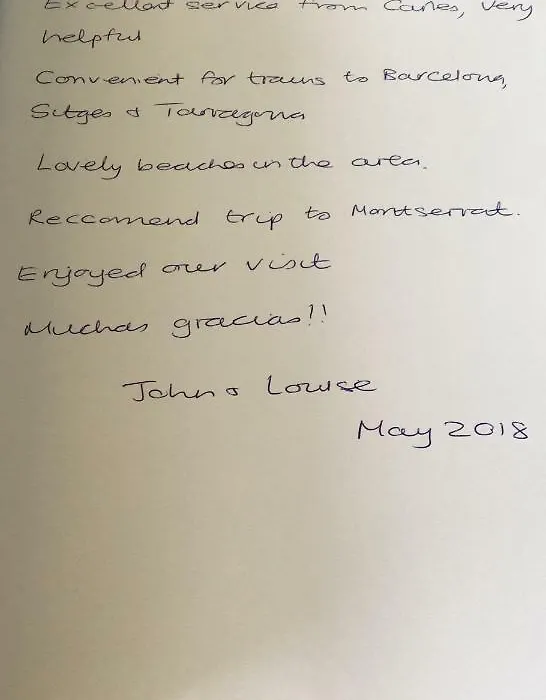 Excellent service from Carles, very
helpful
Convenient for trains to Barcelona,
Sitges & Tarragona
Lovely beaches in the area.
Reccomend trip to Montserrat.
Enjoyed our visit
Muchas gracias!!
John & Louise
May 2018